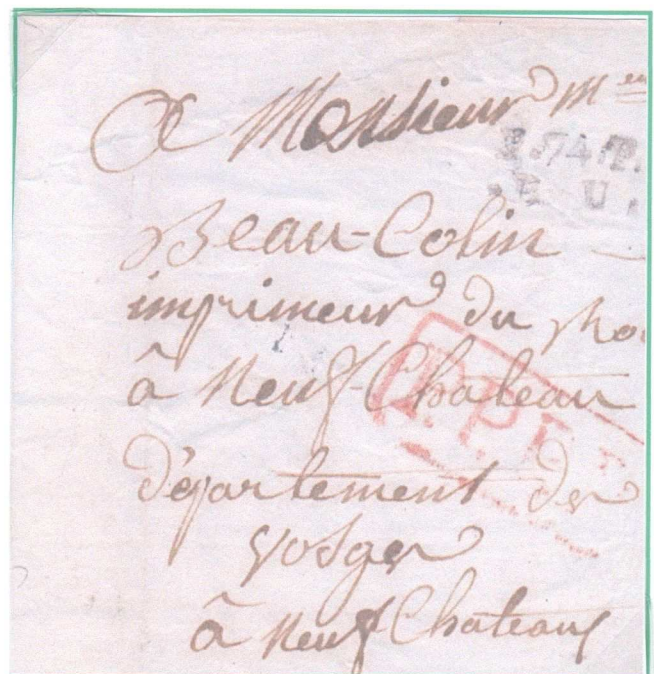 A Monsieur M
P.74.P.
Beau-Colin
imprimeur du Roi
à Neuf-Chateau
P.P.
département des
Vosges
à Neuf Chateaux